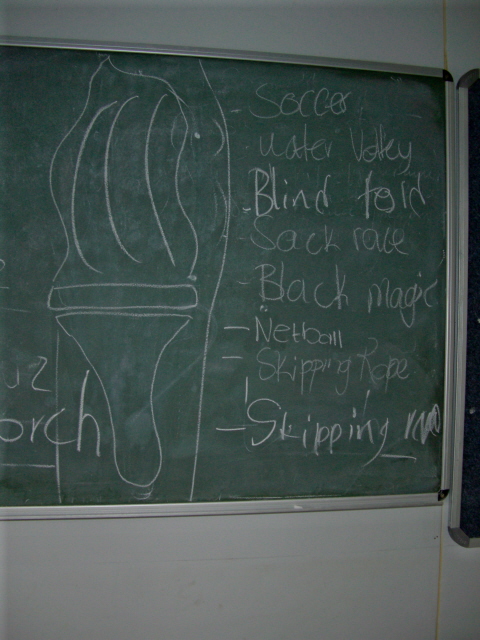 - Soccer
water Volley
Blind fold
- Sack race
- Black magic
- Netball
- Skipping Rope
- Skipping
orch